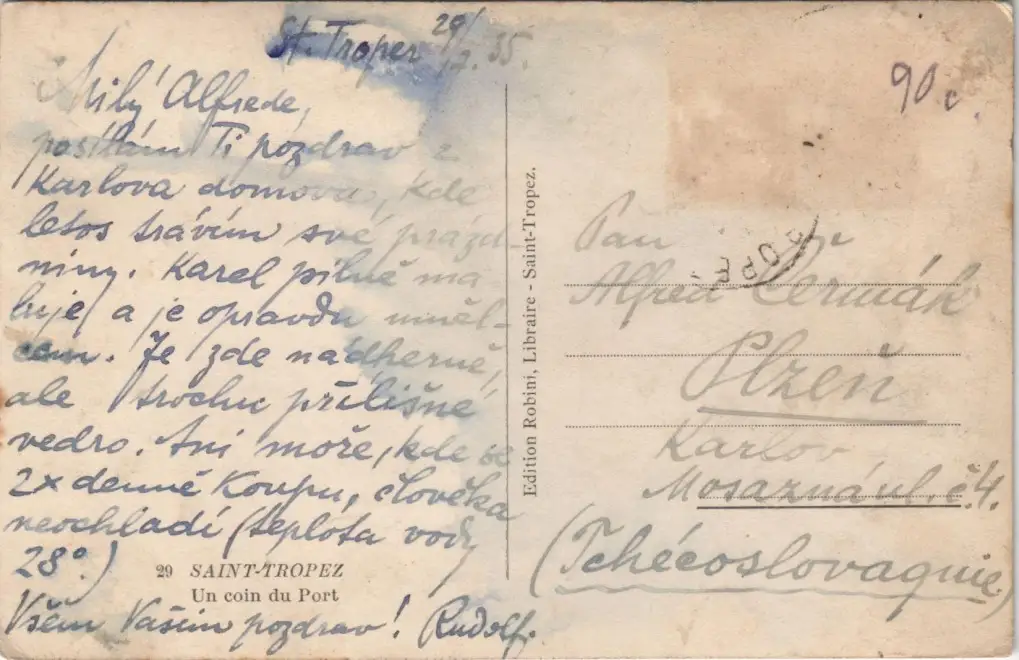 St. Tropez 29/7. 35.
Milý Alfrede,
posílám Ti pozdrav z
Karlova domova, kde
letos trávím své prázd-
niny. Karel pilně ma-
luje a je opravdu uměl-
cem. Je zde nádherně,
ale trochu přílišné
vedro. Ani moře, kde se
2x denně koupu, člověka
neochladí (teplota vody
28°.)
Všem Vašim pozdrav! Rudolf.
29 SAINT-TROPEZ
Un coin du Port
Edition Robini, Libraire - Saint-Tropez.
90 c.
OPE
Pan
Alfred Čermák
Plzeň
Karlov
Mosazná ul. č. 4.
(Tchécoslovaquie)